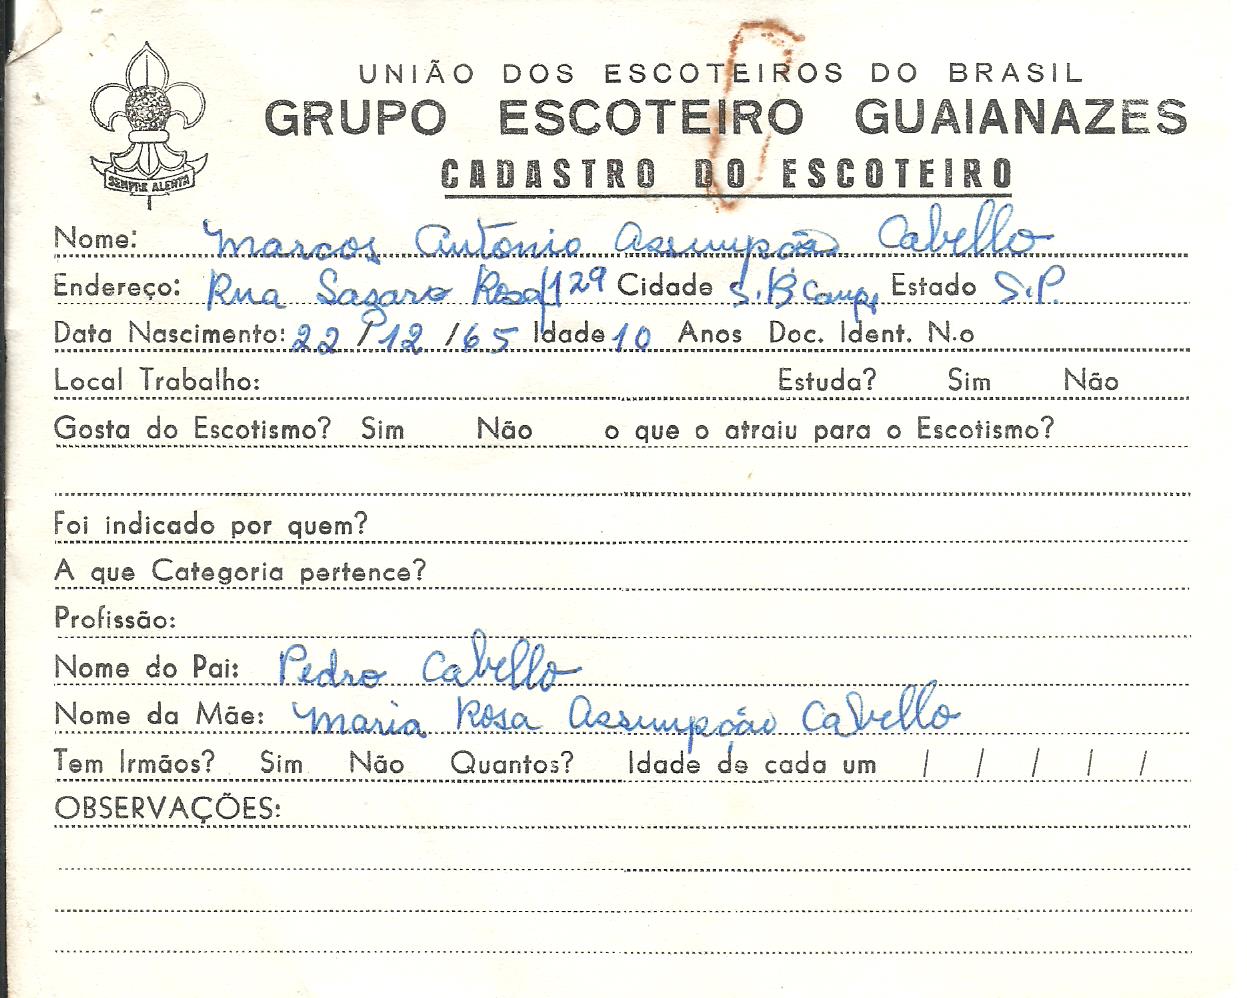 UNIÃO DOS ESCOTEIROS DO BRASIL
GRUPO ESCOTEIRO GUAIANAZES
CADASTRO DO ESCOTEIRO
SEMPRE ALERTA
Nome: Marcos Antonio Assumpção Cabello
Endereço: Rua Sazaro Rosa, 129 Cidade S.B Camp. Estado S.P.
Data Nascimento: 22 / 12 / 65 Idade 10 Anos Doc. Ident. N.o
Local Trabalho: Estuda? Sim Não
Gosta do Escotismo? Sim Não o que o atraiu para o Escotismo?
Foi indicado por quem?
A que Categoria pertence?
Profissão:
Nome do Pai: Pedro Cabello
Nome da Mãe: Maria Rosa Assumpção Cabello
Tem Irmãos? Sim Não Quantos? Idade de cada um / / / / /
OBSERVAÇÕES: